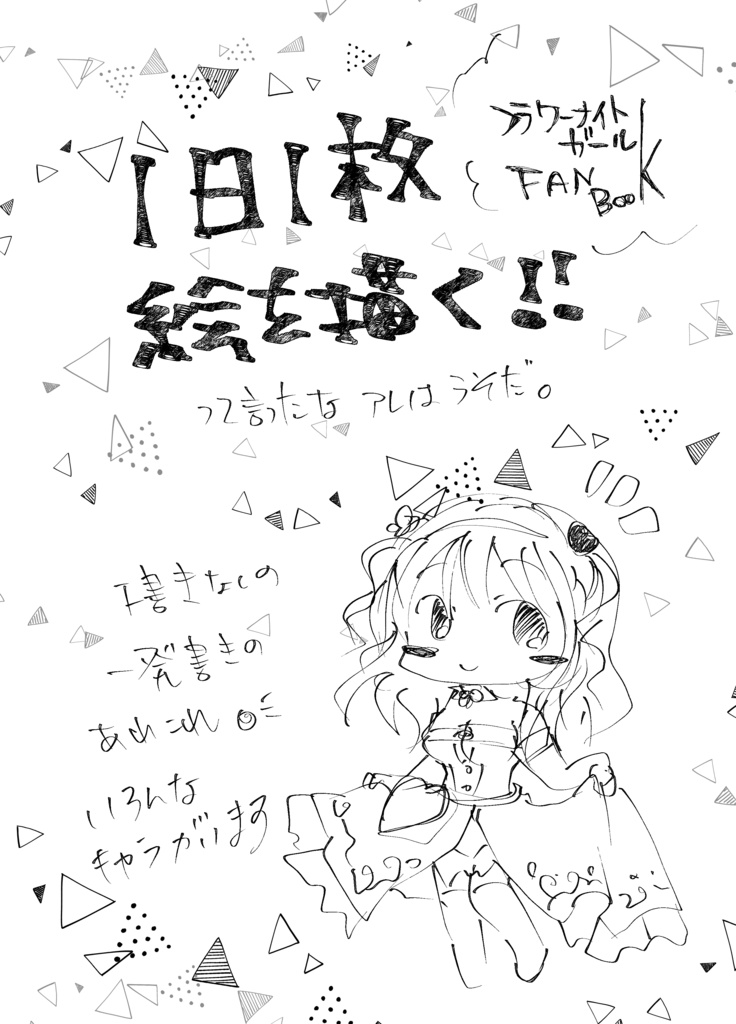 フラワーナイト
ガール
FAN
BOOK
1日1枚
絵を描く!!
って言ったな アレはうそだ。
下書きなしの
一発書きの
あれこれ
いろんな
キャラがいます